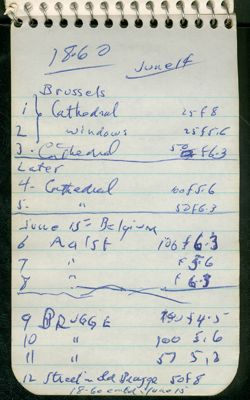 18-60
June 14
Brussels
1 Cathedral 25 f8
2 windows 25 f5.6
3 - Cathedral 50 f6.3
Later
4 - Cathedral 100 f5.6
5 - " 50 f6.3
June 15 - Belgium
6 Aalst 100 f 6.3
7 " f 5.6
8 " f 6.3
9 BRUGGE f4.5
10 " 100 5.6
11 "
12 Street in Old Brugge 50 f8
18-60 ended - June 15